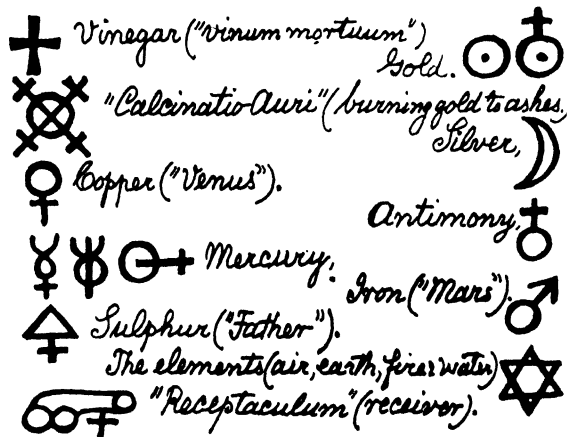 Vinegar ("vinum mortuum")
Gold.
"Calcinatio Auri" (burning gold to ashes,
Silver,
Copper ("Venus").
Antimony,
Mercury,
Iron ("Mars").
Sulphur ("Father").
The elements (air, earth, fire & water)
"Receptaculum" (receiver).